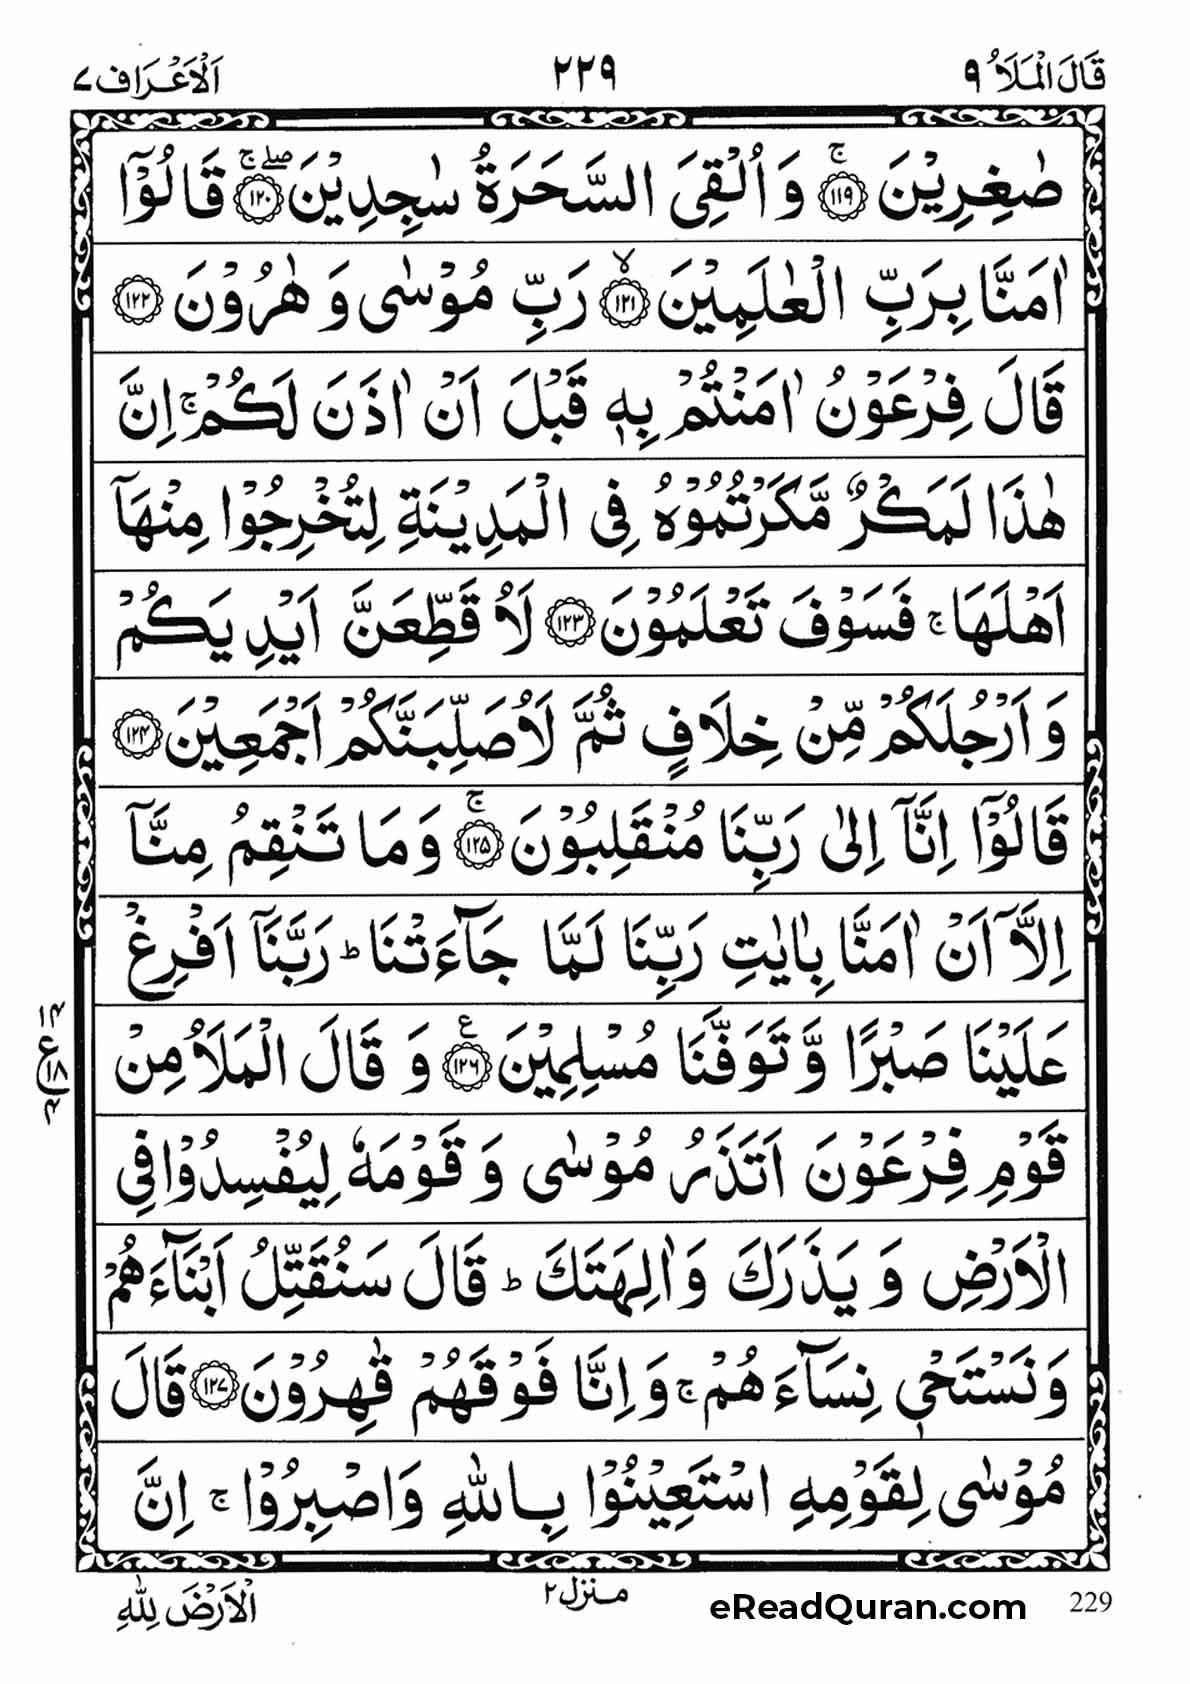 قَالَ الْمَلَاُ ٩ ٢٢٩ اَلْاَعْرَاف ٧
صٰغِرِيْنَ ۚ ﴿١١٩﴾ وَ اُلْقِيَ السَّحَرَةُ سٰجِدِيْنَ ۖۚ ﴿١٢٠﴾ قَالُوْٓا
اٰمَنَّا بِرَبِّ الْعٰلَمِيْنَ ۙ ﴿١٢١﴾ رَبِّ مُوْسٰى وَ هٰرُوْنَ ﴿١٢٢﴾
قَالَ فِرْعَوْنُ اٰمَنْتُمْ بِهٖ قَبْلَ اَنْ اٰذَنَ لَكُمْ ۚ اِنَّ
هٰذَا لَمَكْرٌ مَّكَرْتُمُوْهُ فِى الْمَدِيْنَةِ لِتُخْرِجُوْا مِنْهَآ
اَهْلَهَا ۚ فَسَوْفَ تَعْلَمُوْنَ ﴿١٢٣﴾ لَاُ قَطِّعَنَّ اَيْدِ يَكُمْ
وَ اَرْجُلَكُمْ مِّنْ خِلَافٍ ثُمَّ لَاُصَلِّبَنَّكُمْ اَجْمَعِيْنَ ﴿١٢٤﴾
قَالُوْٓا اِنَّآ اِلٰى رَبِّنَا مُنْقَلِبُوْنَ ۚ ﴿١٢٥﴾ وَ مَا تَنْقِمُ مِنَّآ
اِلَّآ اَنْ اٰمَنَّا بِاٰيٰتِ رَبِّنَا لَمَّا جَآءَتْنَا ؕ رَبَّنَآ اَفْرِغْ
عَلَيْنَا صَبْرًا وَّ تَوَفَّنَا مُسْلِمِيْنَ ﴿١٢٦﴾ ع وَ قَالَ الْمَلَاُ مِنْ
١٤ ع ١٨ ٤
قَوْمِ فِرْعَوْنَ اَتَذَرُ مُوْسٰى وَ قَوْمَهٗ لِيُفْسِدُوْا فِى
الْاَرْضِ وَ يَذَرَكَ وَ اٰلِهَتَكَ ؕ قَالَ سَنُقَتِّلُ اَبْنَآءَهُمْ
وَ نَسْتَحْيٖ نِسَآءَ هُمْ ۚ وَ اِنَّا فَوْقَهُمْ قٰهِرُوْنَ ﴿١٢٧﴾ قَالَ
مُوْسٰى لِقَوْمِهِ اسْتَعِيْنُوْا بِاللّٰهِ وَاصْبِرُوْا ۚ اِنَّ
الْاَرْضَ لِلّٰهِ منزل ٢ eReadQuran.com 229